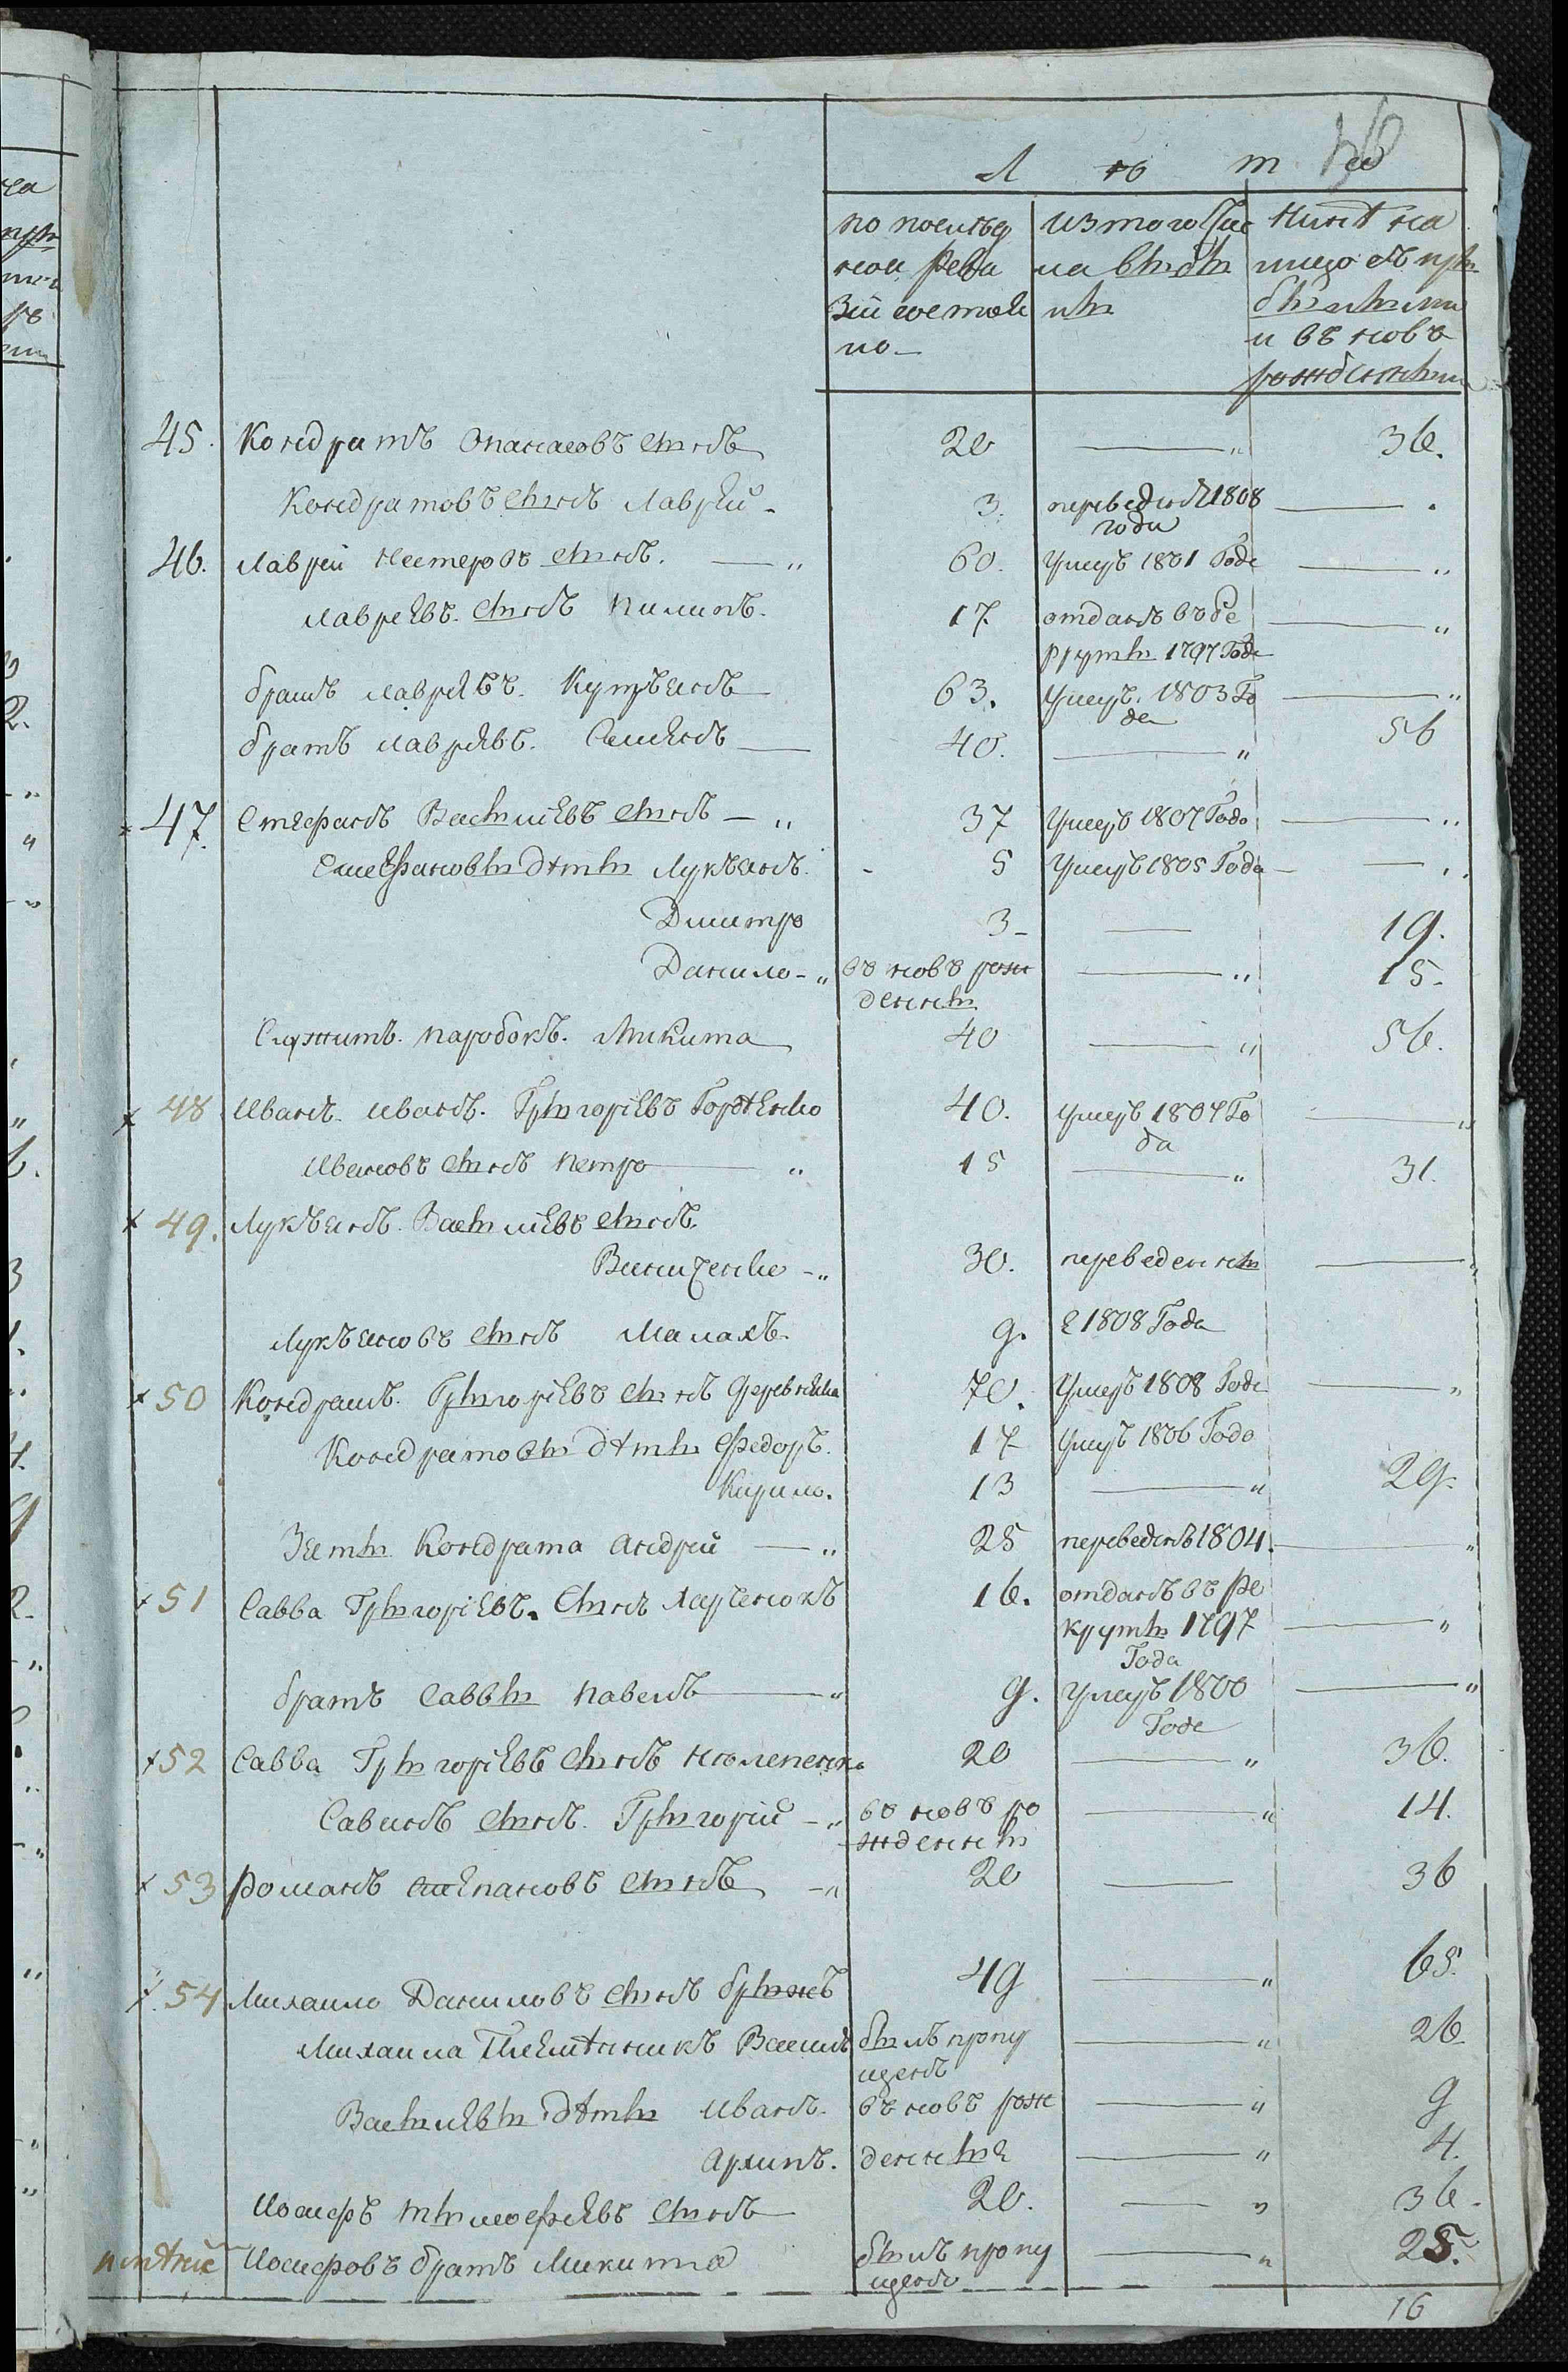 Л ѣ т а
по послѣд ней реви зіи состоя ло — | изтого чис ла выбы ли | нинѣ на лицо съ при былыми и въ новъ рожденными
45. Кондратъ Опанасовъ сынъ 20 — " 36.
Кондратовъ сынъ Лаврѣй - 3. переведенъ 1808 года — .
46. Лаврѣй Нестеровъ сынъ. — " 60. Умеръ 1801 Года — "
Лаврѣевъ. сынъ Пилипъ. 17 отданъ въ ре круты 1797 Года — "
братъ Лаврѣевъ. Купрѣянъ 63. Умеръ. 1803 Го да — "
братъ Лаврѣевъ. Семенъ — 40. — " 56
47. Стефанъ Васылиевъ сынъ — " 37 Умеръ 1807 Года — "
Стефановы дѣты Лукьянъ. - 5 Умеръ 1805 Года — "
Дмитро 3 - — 19.
Данило - " въ новъ рож денны — " 15.
Служитъ. паробокъ. Микита 40 — " 56.
48 Иванъ. Иванъ. Грыгоріевъ 40. умеръ 1807 Го да — "
Ивановъ сынъ Петро — " 15 — " 31.
49. Лукьянъ. Васылиевъ сынъ.
- " 30. переведенны — "
Лукьяновъ сынъ Малахъ. 9. 1808 Года
50 Кондратъ. Грыгоріевъ сынъ 70. Умеръ 1808 Года — "
Кондратовы дѣты Федоръ. 17 Умеръ 1806 Года
Кирило. 13 — " 29.
Зяты Кондрата Андрѣй — " 25 переведенъ 1804. — "
51 Савва Грыгоріевъ. сынъ 16. отданъ въ ре круты 1797 Года — "
братъ Саввы Павелъ — " 9. Умеръ 1800 Года — "
52 Савва Грыгоріевъ сынъ 20 — " 36.
Савинъ сынъ. Грыгорій - " въ новъ ро жденны — " 14.
53 Романъ Степановъ сынъ - " 20 — 36
54 Михаило Даниловъ сынъ 49 — " 65.
Михаила Племѣнникъ Василь былъ пропу щенъ — " 26
Васылиевы дѣты Иванъ. въ новъ рож — " 9
Архипъ. денные — " 4.
Иосифъ Тымофѣевъ сынъ 20. — " 36.
Иосифовъ братъ Микита былъ пропу щенъ — " 25.
16